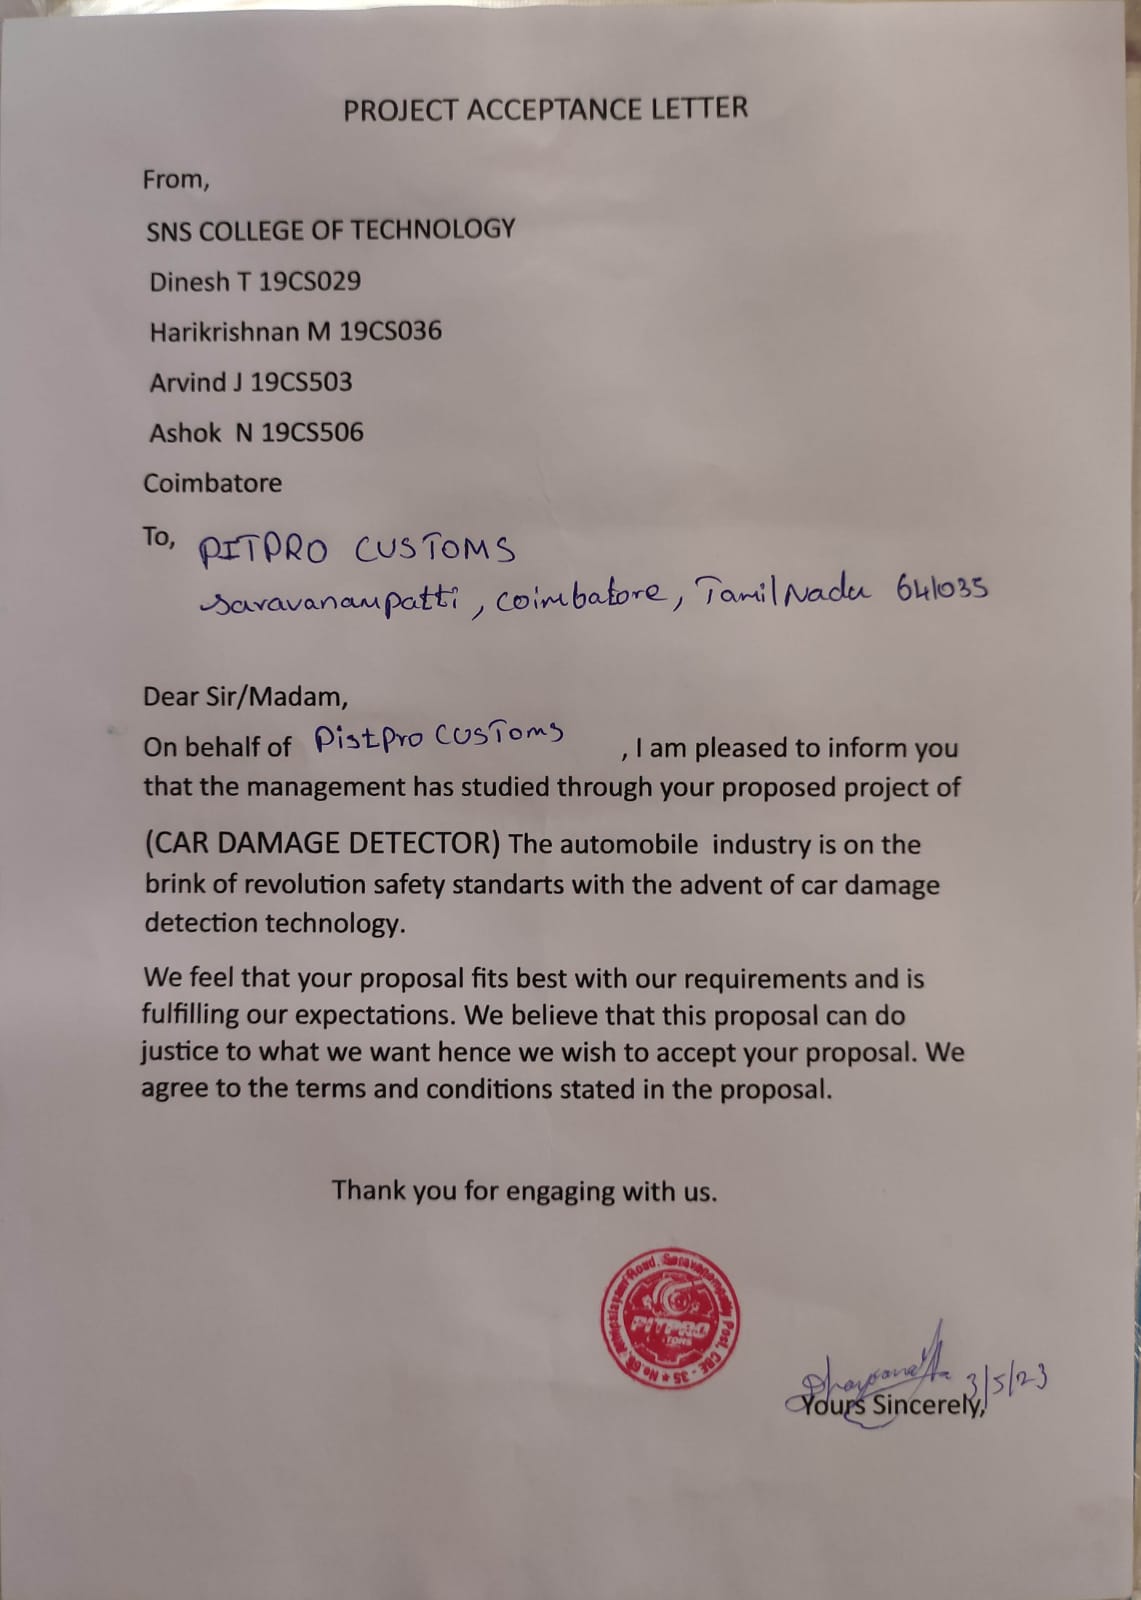 PROJECT ACCEPTANCE LETTER
From,
SNS COLLEGE OF TECHNOLOGY
Dinesh T 19CS029
Harikrishnan M 19CS036
Arvind J 19CS503
Ashok N 19CS506
Coimbatore
To, PITPRO CUSTOMS
Saravanampatti, Coimbatore, TamilNadu 641035
Dear Sir/Madam,
On behalf of PistPro CUSToms , I am pleased to inform you
that the management has studied through your proposed project of
(CAR DAMAGE DETECTOR) The automobile industry is on the
brink of revolution safety standarts with the advent of car damage
detection technology.
We feel that your proposal fits best with our requirements and is
fulfilling our expectations. We believe that this proposal can do
justice to what we want hence we wish to accept your proposal. We
agree to the terms and conditions stated in the proposal.
Thank you for engaging with us.
Road, Saravanampatty Post, CBE - 35 * No.
PITPRO
3/5/23
Yours Sincerely,